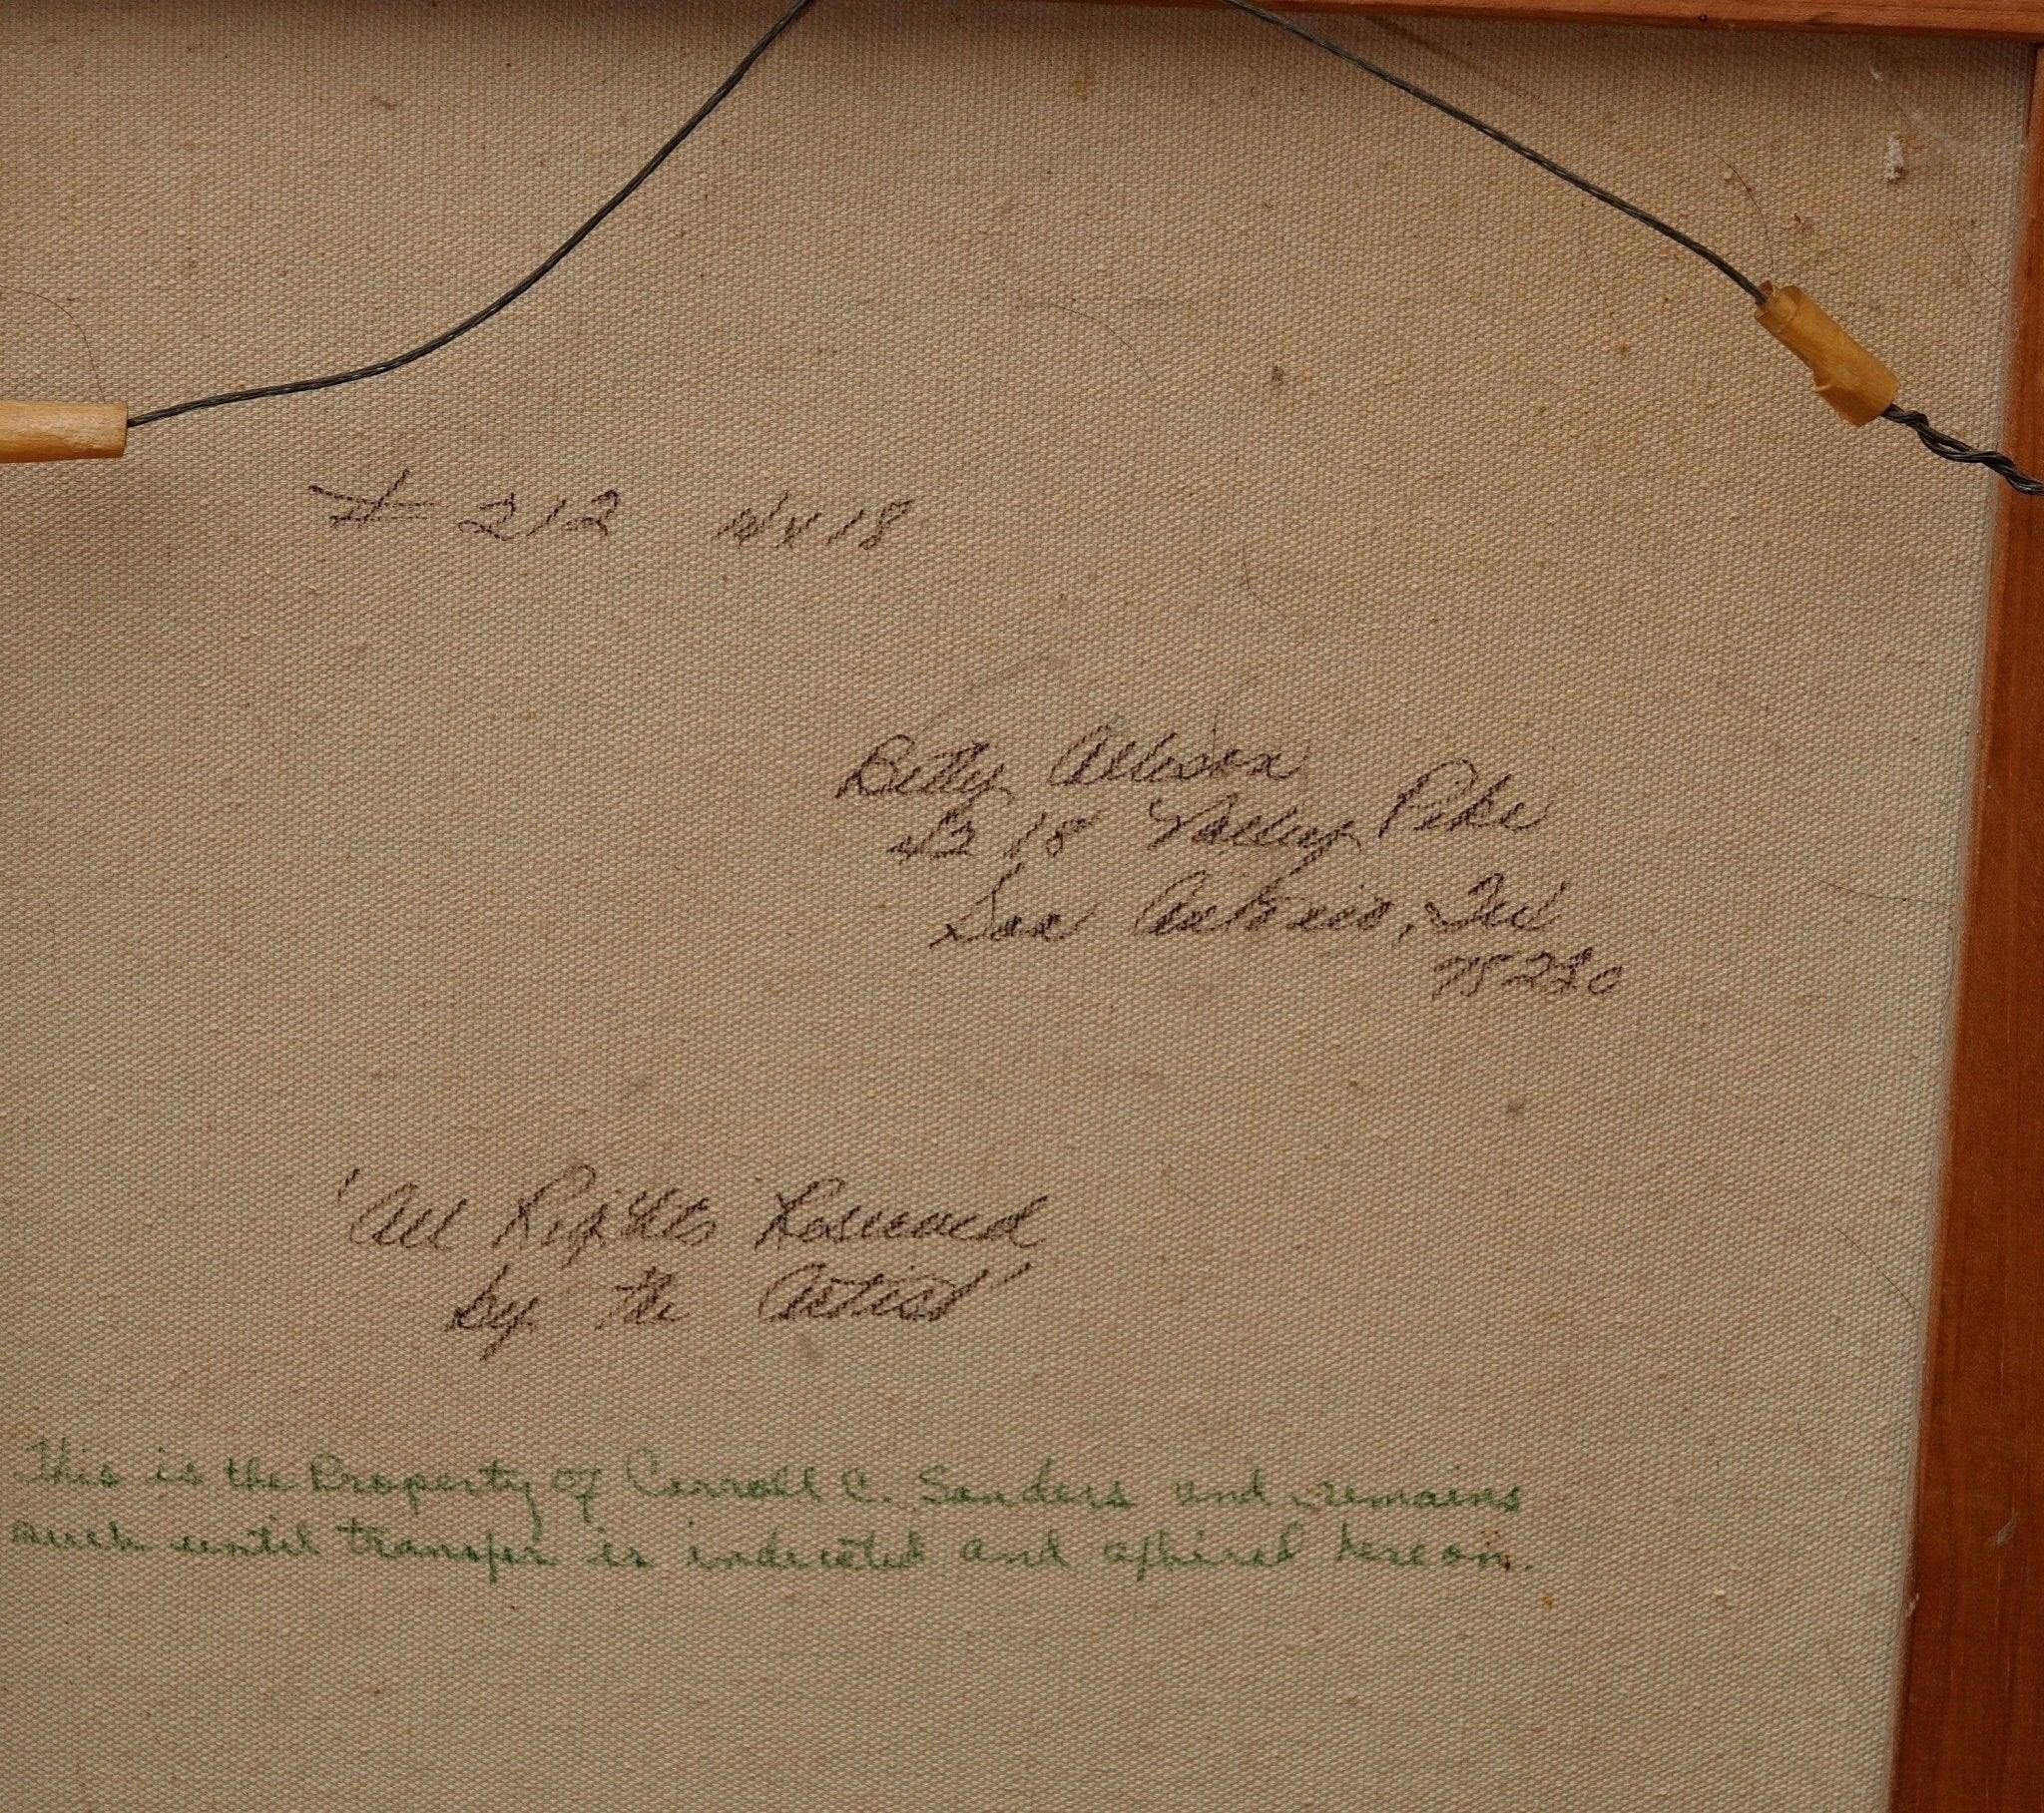 # 212 x 18
Betty Allison
18 Valley Pike
San Antonio, Tex
'All Rights Reserved
by the Artist'
This is the Property of Carroll C. Sanders and remains
such until transfer is indicated and affixed hereon.